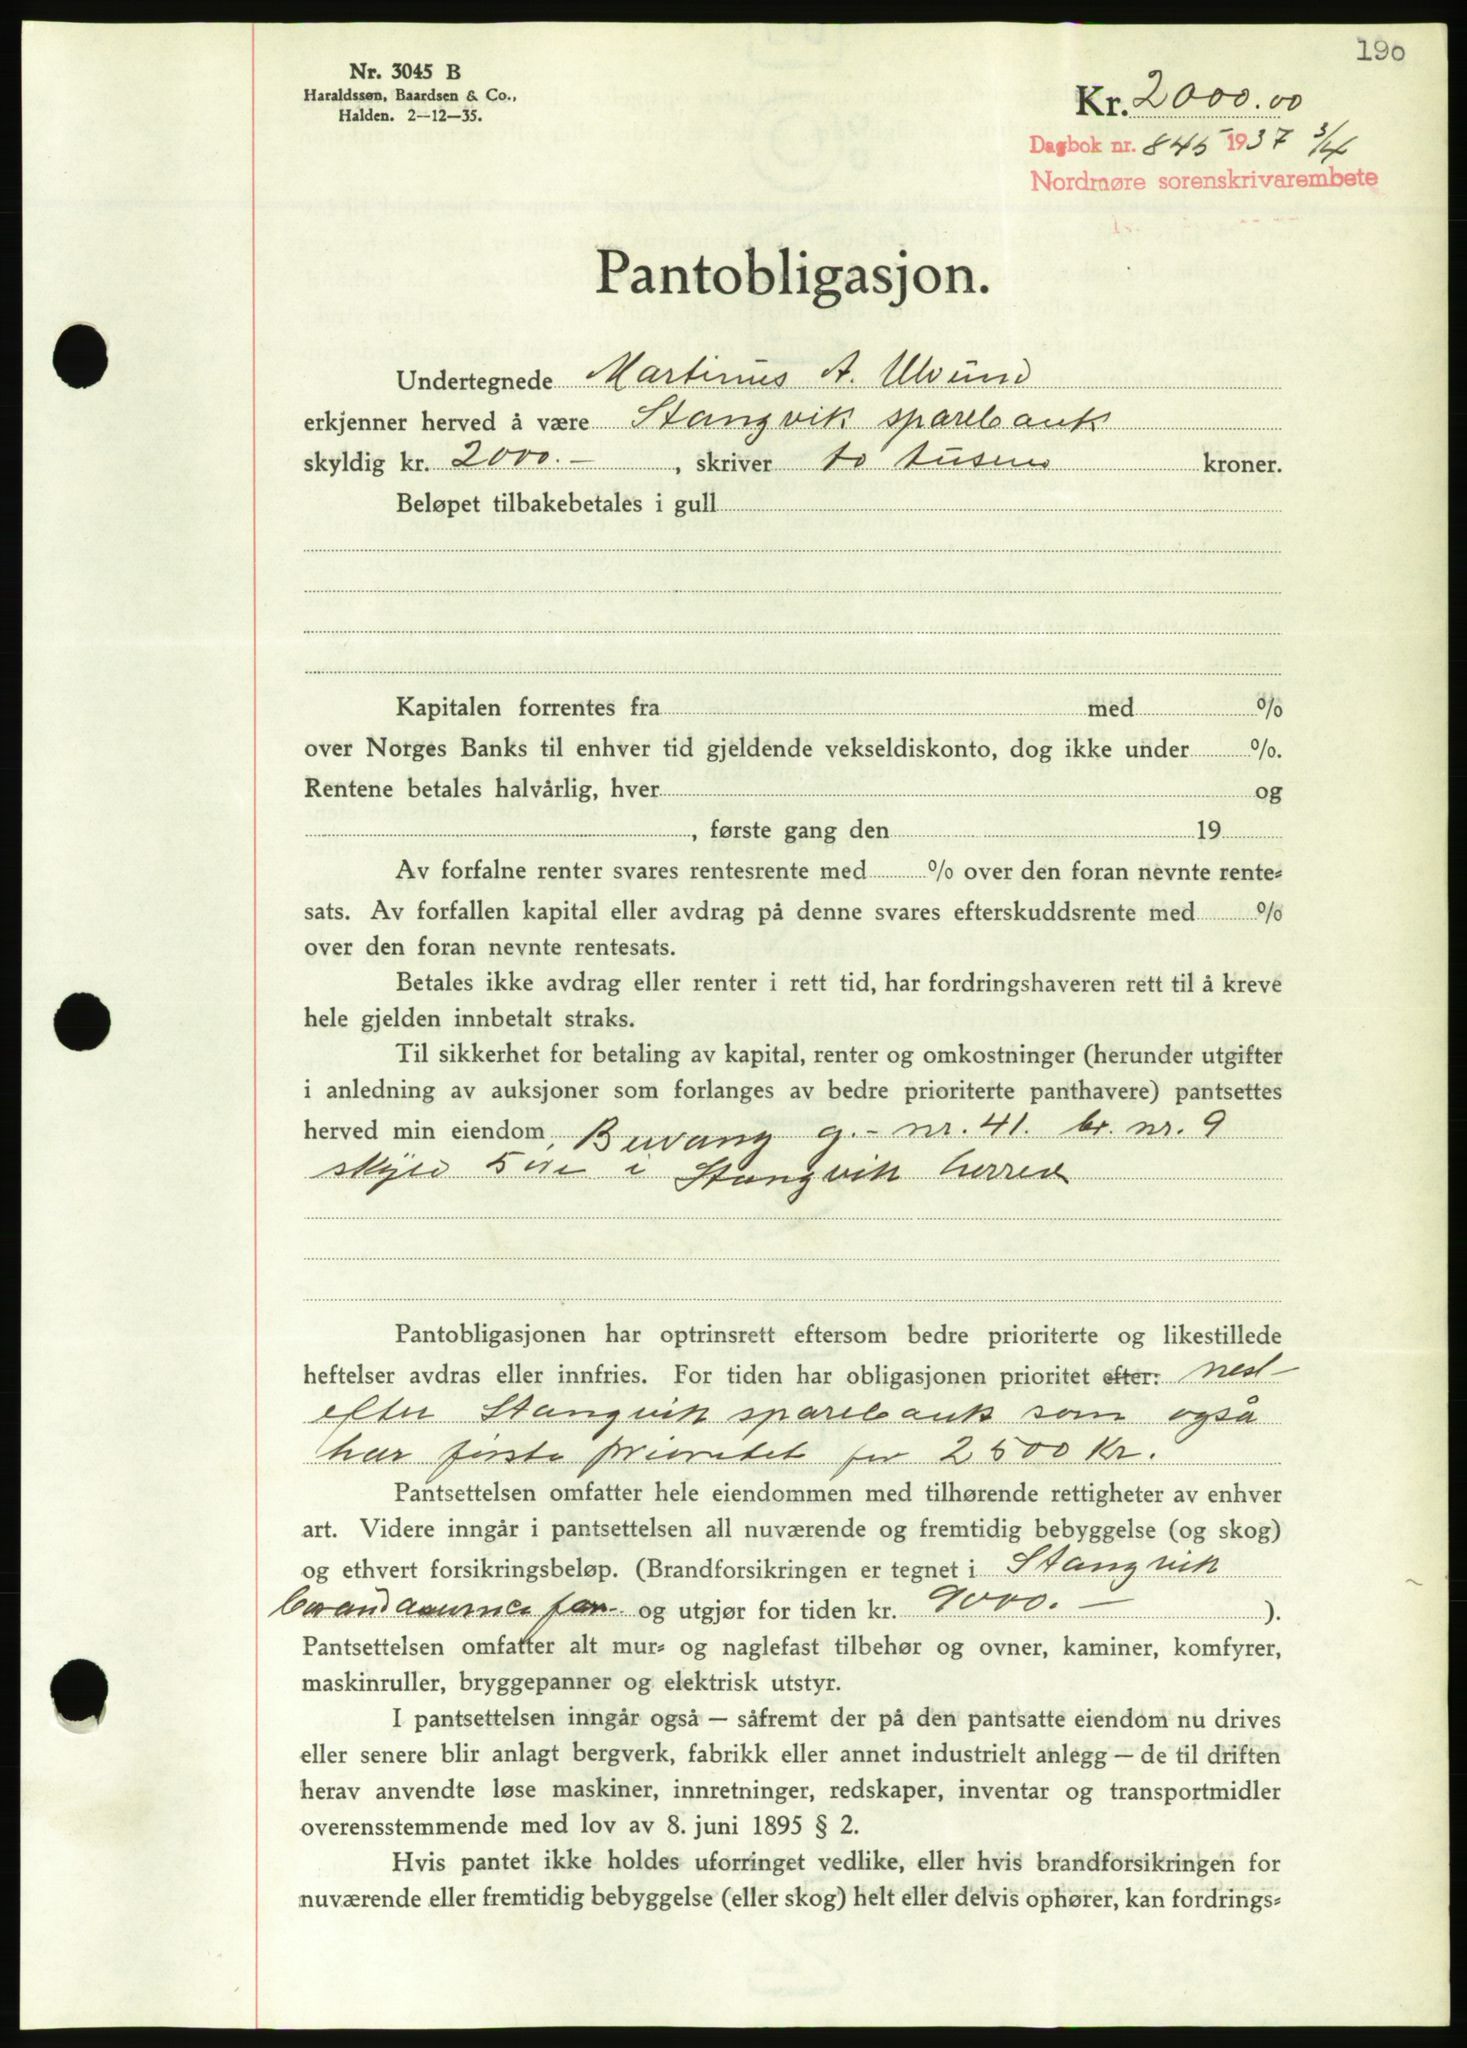 190
Nr. 3045 B
Haraldssøn, Baardsen & Co.,
Halden. 2—12—35.
Kr. 2000.00
Dagbok nr. 845 1937 3/4
Nordmøre sorenskrivarembete
Pantobligasjon.
Undertegnede Martinus A. Ulvund
erkjenner herved å være Stangvik sparebank
skyldig kr. 2000.- , skriver to tusen kroner.
Beløpet tilbakebetales i gull
Kapitalen forrentes fra med %
over Norges Banks til enhver tid gjeldende vekseldiskonto, dog ikke under %.
Rentene betales halvårlig, hver og
, første gang den 19
Av forfalne renter svares rentesrente med % over den foran nevnte rente=
sats. Av forfallen kapital eller avdrag på denne svares efterskuddsrente med %
over den foran nevnte rentesats.
Betales ikke avdrag eller renter i rett tid, har fordringshaveren rett til å kreve
hele gjelden innbetalt straks.
Til sikkerhet for betaling av kapital, renter og omkostninger (herunder utgifter
i anledning av auksjoner som forlanges av bedre prioriterte panthavere) pantsettes
herved min eiendom, g.- nr. 41. br. nr. 9
skyld 5 øre i Stangvik herred
Pantobligasjonen har optrinsrett eftersom bedre prioriterte og likestillede
heftelser avdras eller innfries. For tiden har obligasjonen prioritet efter: nest
efter Stangvik sparebank som også
har første prioritet for 2500 Kr.
Pantsettelsen omfatter hele eiendommen med tilhørende rettigheter av enhver
art. Videre inngår i pantsettelsen all nuværende og fremtidig bebyggelse (og skog)
og ethvert forsikringsbeløp. (Brandforsikringen er tegnet i Stangvik
og utgjør for tiden kr. 9000.- ).
Pantsettelsen omfatter alt mur= og naglefast tilbehør og ovner, kaminer, komfyrer,
maskinruller, bryggepanner og elektrisk utstyr.
I pantsettelsen inngår også — såfremt der på den pantsatte eiendom nu drives
eller senere blir anlagt bergverk, fabrikk eller annet industrielt anlegg — de til driften
herav anvendte løse maskiner, innretninger, redskaper, inventar og transportmidler
overensstemmende med lov av 8. juni 1895 § 2.
Hvis pantet ikke holdes uforringet vedlike, eller hvis brandforsikringen for
nuværende eller fremtidig bebyggelse (eller skog) helt eller delvis ophører, kan fordrings=